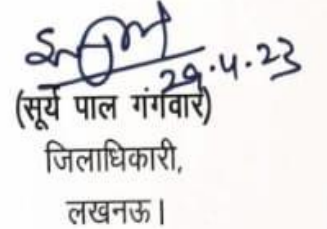 29.4.23
(सूर्य पाल गंगवार)
जिलाधिकारी,
लखनऊ।